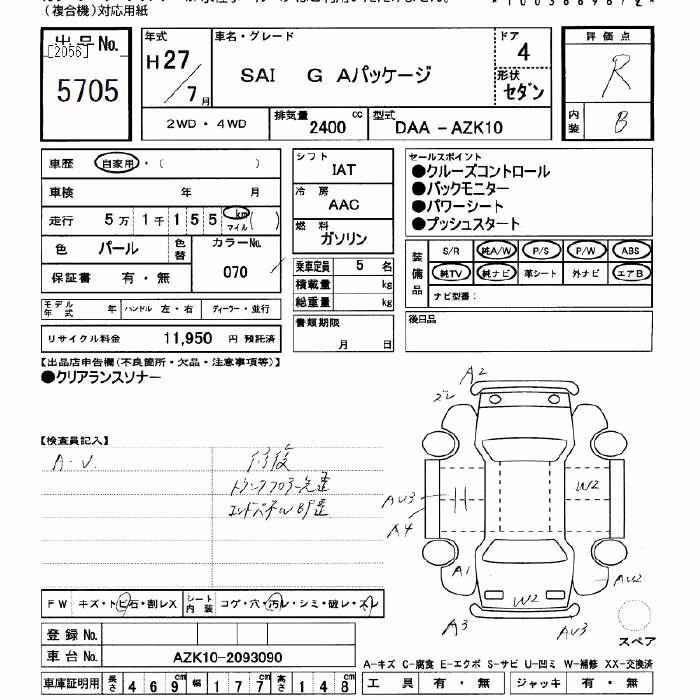 （複合機）対応用紙
出品No.
[2056]
5705
年式
H27/7月
車名・グレード
SAI G Aパッケージ
ドア
4
形状
セダン
評価点
R
内装
B
2WD・4WD
排気量
2400 cc
型式
DAA-AZK10
車歴 自家用・( )
車検 年 月
走行 5万1千155 km マイル ( )
色 パール 色替 カラーNo. 070
保証書 有・無
シフト
IAT
冷房
AAC
燃料
ガソリン
乗車定員 5 名
積載量 kg
総重量 kg
書類期限
月 日
セールスポイント
●クルーズコントロール
●バックモニター
●パワーシート
●プッシュスタート
装備品
S/R 純A/W P/S P/W ABS
純TV 純ナビ 革シート 外ナビ エアB
ナビ型番：
後日品
モデル年式 年 ハンドル 左・右 ディーラー・並行
リサイクル料金 11,950 円 預託済
【出品店申告欄(不良箇所・欠品・注意事項等)】
●クリアランスソナー
【検査員記入】
A・U 修復
トランクフロアー先歪
エンドパネルBP歪
A2
AU3
A4
W2
A1
AU2
W2
A3
AU3
スペア
FW キズ・トビ石・割レX シート内装 コゲ・穴・汚レ・シミ・破レ・スレ
登録No.
車台No. AZK10-2093090
車庫証明用 長さ 469cm 幅 177cm 高さ 148cm
A-キズ C-腐食 E-エクボ S-サビ U-凹ミ W-補修 XX-交換済
工具 有・無 ジャッキ 有・無